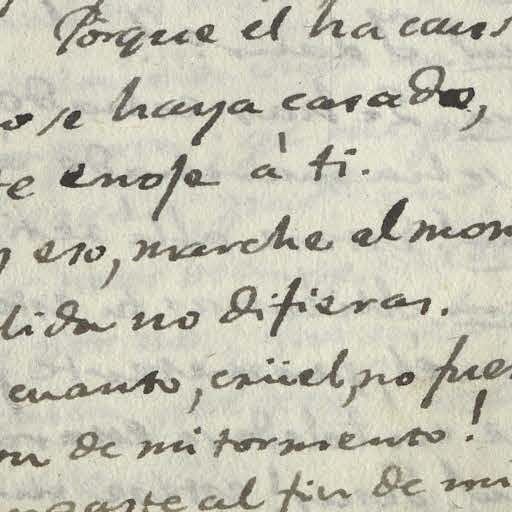 Porque el ha caus
o se haya casado,
te enose à ti.
eso, marche al mom
lida no difieras.
cuanto, crüel, no fue
de mi tormento!
al fin de mi